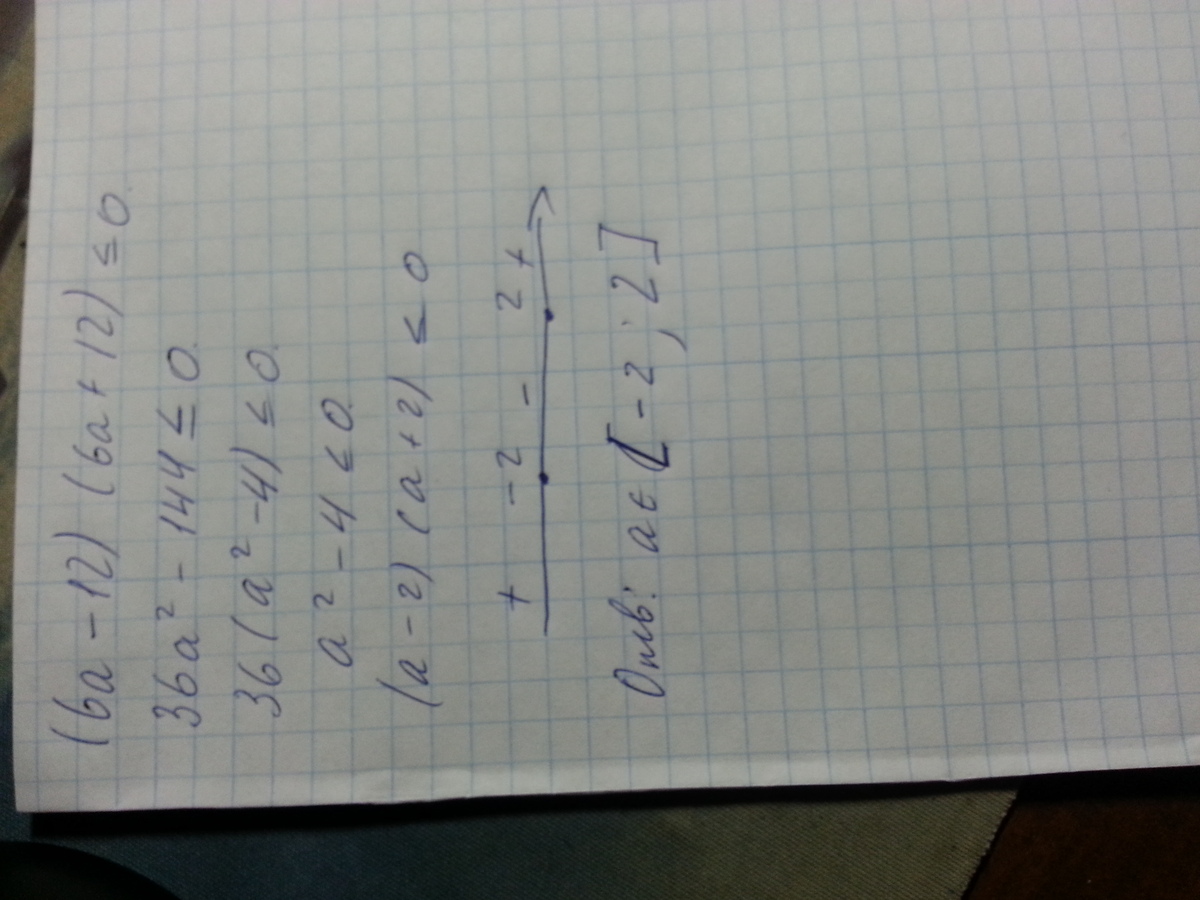 (6a - 12) (6a + 12) ≤ 0.
36a² - 144 ≤ 0.
36 (a² - 4) ≤ 0.
a² - 4 ≤ 0.
(a - 2) (a + 2) ≤ 0
+ -2 - 2 +
Отв: a ∈ [-2; 2]